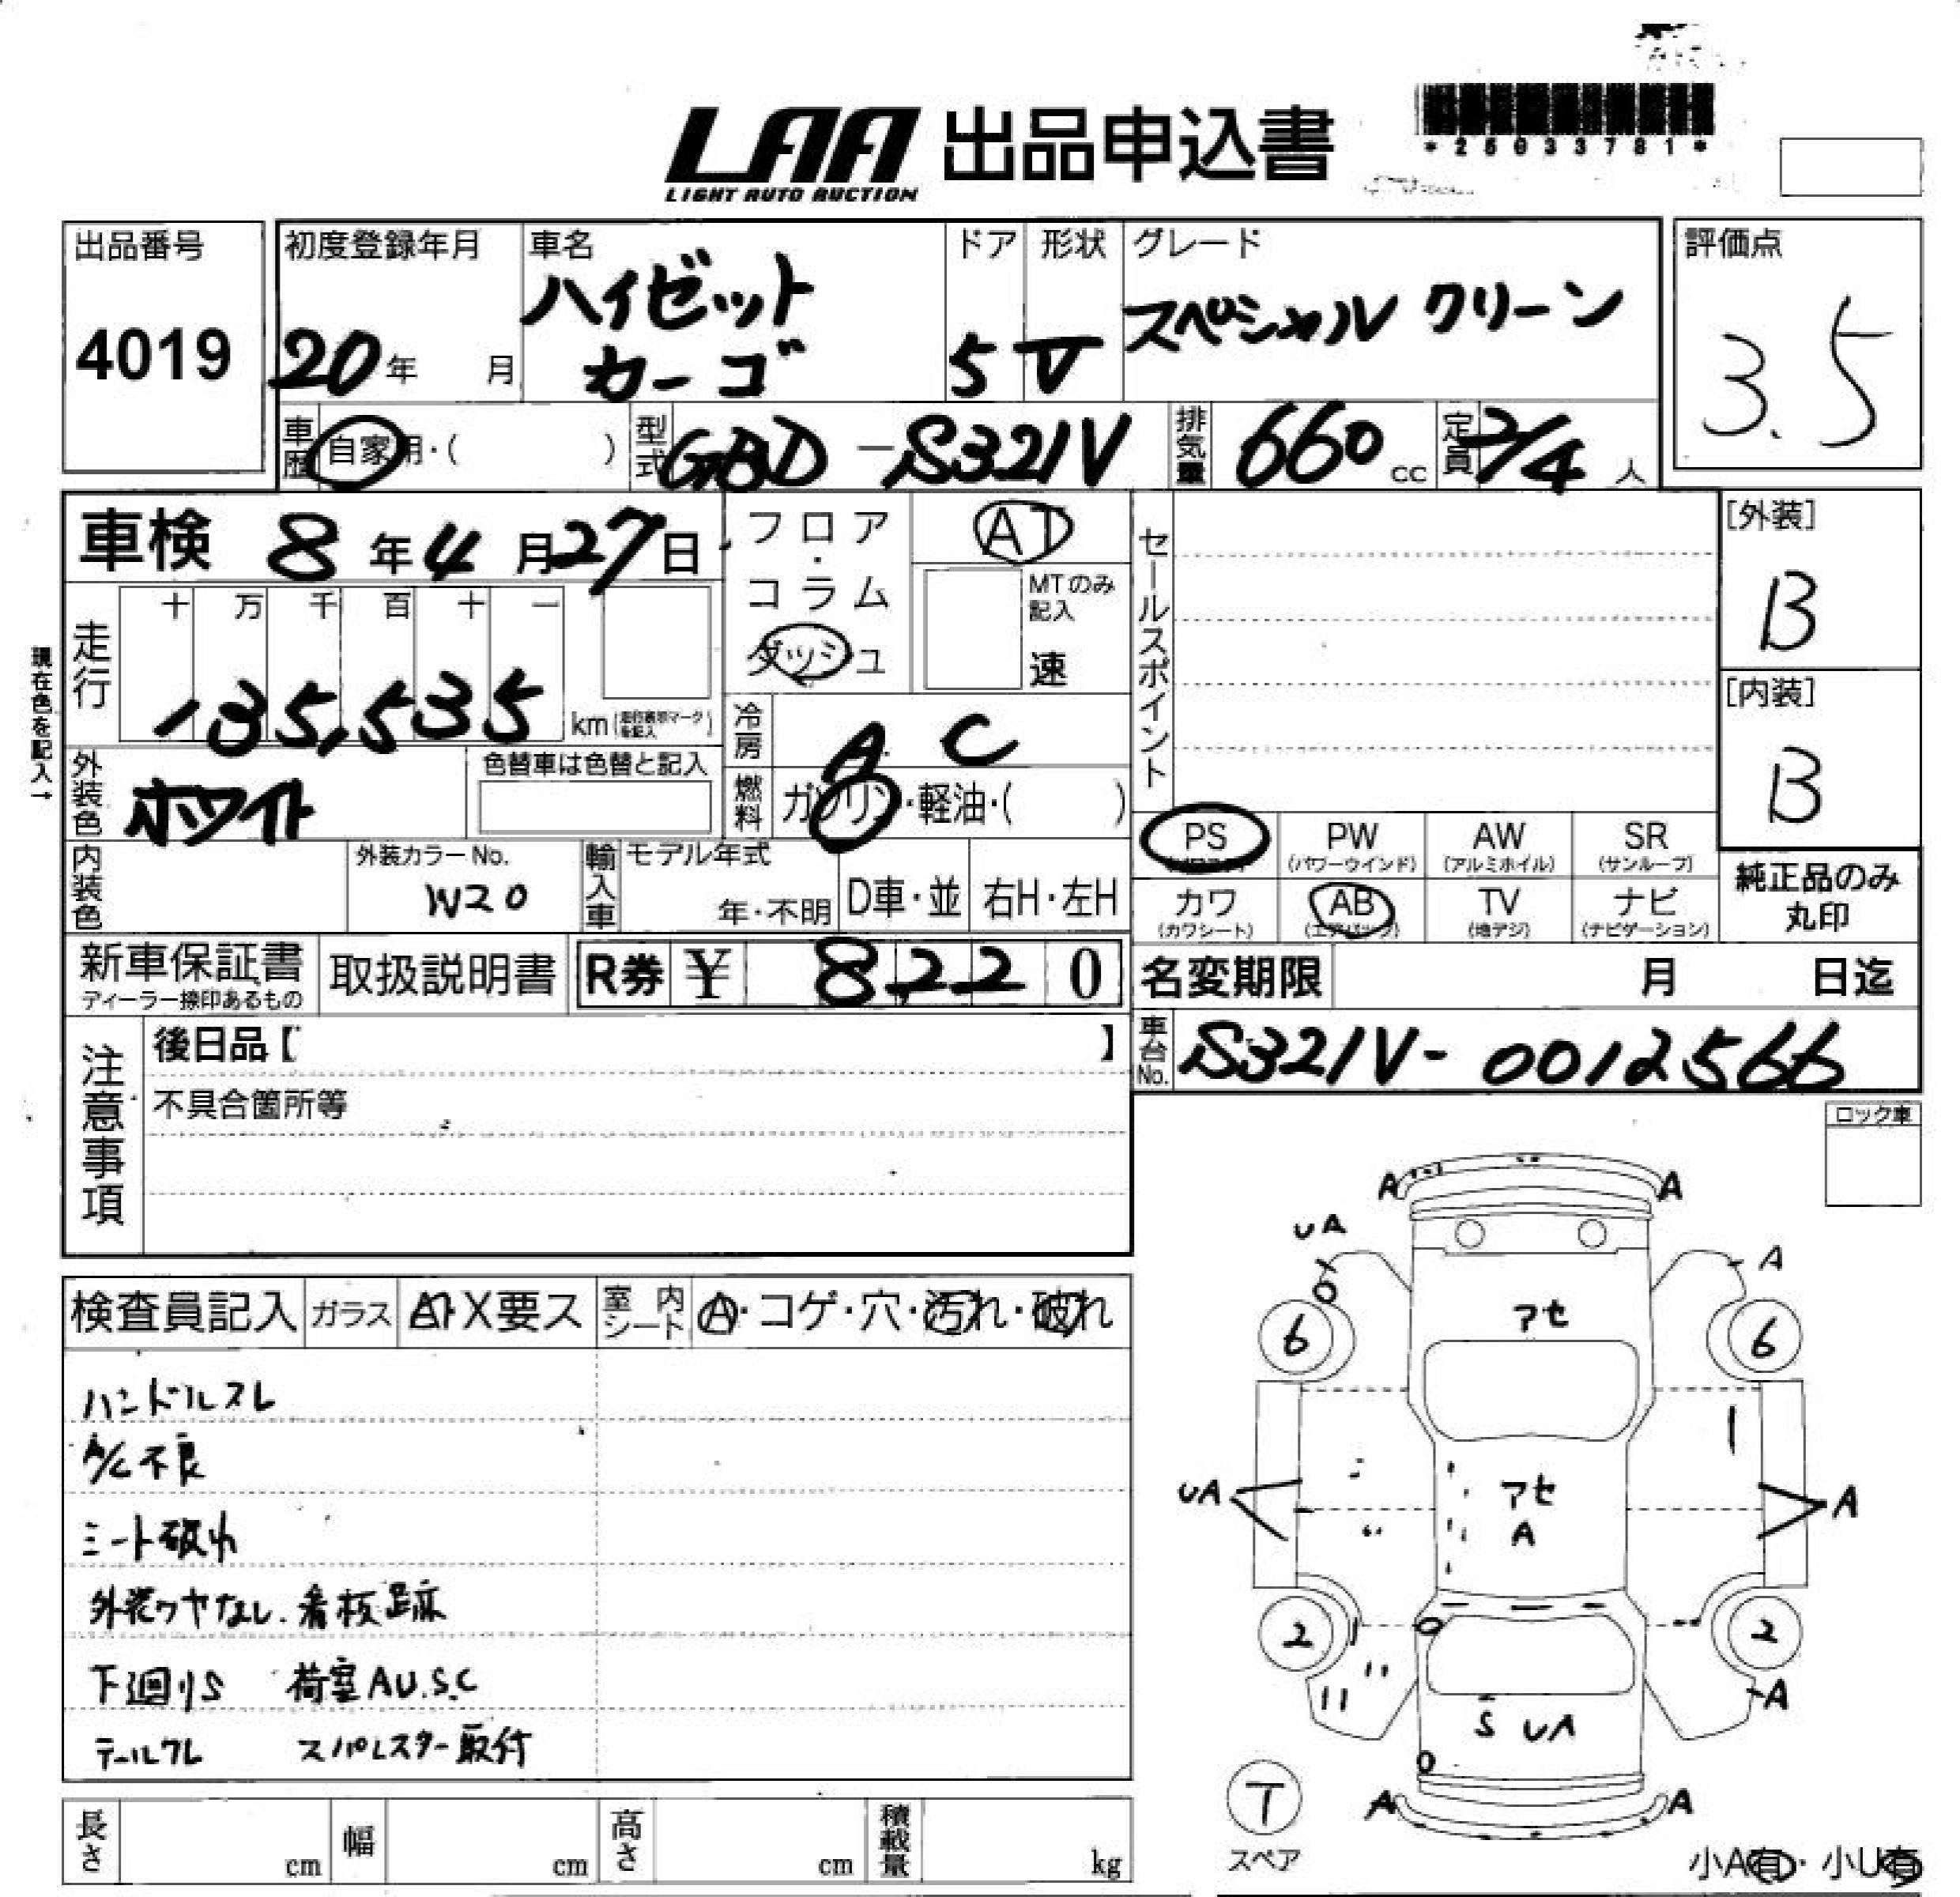 LAA 出品申込書
LIGHT AUTO AUCTION
*25033781*
出品番号
4019
初度登録年月
20年 月
車名
ハイゼット
カーゴ
ドア
5
形状
V
グレード
スペシャル クリーン
評価点
3.5
車歴 自家用・( )
型式 GBD-S321V
排気量 660 cc
定員 2/4 人
車検 8年4月27日
走行 十 万 千 百 十 一
135,535 km
現在色を記入→
外装色 ホワイト
色替車は色替と記入
内装色
外装カラーNo.
W20
フロア・コラム
ダッシュ
AT
MTのみ
記入
速
冷房 A C
燃料 ガソリン・軽油・( )
輸入車 モデル年式
年・不明
D車・並 右H・左H
セールスポイント
[外装]
B
[内装]
B
PS PW (パワーウインド) AW (アルミホイル) SR (サンルーフ)
カワ (カワシート) AB (エアバック) TV (地デジ) ナビ (ナビゲーション)
純正品のみ
丸印
新車保証書
ディーラー捺印あるもの
取扱説明書
R券 ¥ 8,220
名変期限 月 日迄
車台No. S321V-0012566
注意事項
後日品【 】
不具合箇所等
ロック車
検査員記入 ガラス A・X要ス 室内シート A・コゲ・穴・汚れ・破れ
ハンドルスレ
A/C不良
シート破れ
外装ツヤなし. 看板跡
下廻りS 荷室AU.S.C
テールワレ スパレスター取付
A A
UA A
アセ
6 6
UA アセ A
A
2 2
S UA A
A A
T
スペア
小A有・小U有
長さ cm 幅 cm 高さ cm 積載量 kg